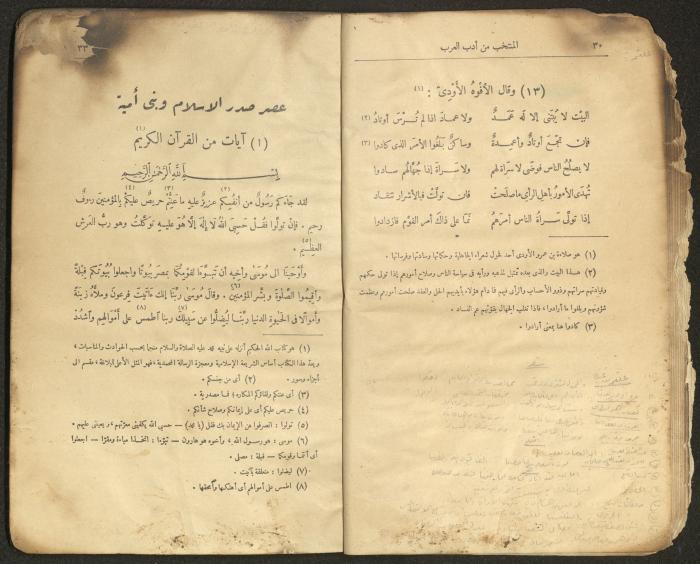 ٣٠
المنتخب من أدب العرب
(١٣) وقال الأفوه الأودى : (١)
البيت لا يُبْتَنَى إلا له عَمَدٌ ولا عماد اذا لم تُرْسَ أوتادُ (٢)
فان تجمّع أوتادٌ وأعمدةٌ وساكنٌ بلغوا الأمرَ الذى كادوا (٣)
لا يصلُحُ الناس فوضَى لا سَراةَ لهم ولا سَراةَ إذا جُهّالُهم سادوا
تُهدَى الأمورُ بأهل الرأى ماصلَحتْ فان تولّتْ فبالأشرار تنقاد
إذا تولّى سَراةُ الناس أمرَهُم نمَا على ذاك أمر القوم فازدادوا
(١) هو صلاءة بن عمرو الأودى أحد فحول شعراء الجاهلية وحكمائها وسادتها وفرسانها .
(٢) هذا البيت والذى بعده تمثيل لمذهبه ورأيه فى سياسة الناس وصلاح أمورهم إذا تولى حكمهم
وقيادتهم سراتهم وذوو الأحساب والرأى فيهم فما دام هؤلاء بأيديهم الحل والعقد صلحت أمورهم ونظمت
شؤونهم وبلغوا ما أرادوا ، فاذا تغلب الجهال بقوتهم عم الفساد .
(٣) كادوا هنا بمعنى أرادوا .
٣٣
عصر صدر الاسلام وبنى أمية
(١) آيات من القرآن الكريم (١)
بسم الله الرحمن الرحيم
لقد جاءكم رسولٌ من أنفسكم (٢) عزيزٌ عليه ما عنتُّم (٣) حريصٌ عليكم (٤) بالمؤمنين رءوفٌ
رحيم . فإن تولَّوا فقُل حسبىَ اللهُ لا إله إلّا هو عليه توكّلتُ وهو ربُّ العرش
العظيم .
وأوْحَينا الى موسَى وأخيه أن تبوَّءا لقومكما بمصرَ بيوتًا واجعلوا بيوتَكم قِبْلَةً
وأقيموا الصَّلوةَ وبشّر المؤمنين (٦) . وقال موسَى ربّنا إنك ءاتيتَ فرعونَ وملأَه زينةً
وأموالا فى الحيوة الدنيا ربَّنا ليُضلُّوا عن سبيلك (٧) ربنا اطمس (٨) على أموالهم واشْدُدْ
(١) هو كتاب الله الحكيم أنزله على نبيه محمد عليه الصلاة والسلام منجما بحسب الحوادث والمناسبات ،
ويعد هذا الكتاب أساس الشريعة الإسلامية ومعجزة الرسالة المحمدية ، فهو المثل الأعلى للبلاغة ، مقسم الى
أجزاء وسور . (٢) أى من جنسكم .
(٣) أى عنتكم ولقاؤكم المكاره ؛ فما مصدرية .
(٤) حريص عليكم أى على إيمانكم وصلاح شأنكم .
(٥) تولوا : انصرفوا عن الإيمان بك فقل (يا محمد) — حسبى الله يكفينى معرّتهم ، ويعينى عليهم .
(٦) موسى : هو رسول الله ، وأخوه هو هارون — تبوّءا : اتخذا مباءة ومقرّا — اجعلوا
أى أنتما وقومكما — قبلة : مصلى .
(٧) ليضلوا : متعلقة بآتيت .
(٨) اطمس على أموالهم أى أهلكها وأمحقها .